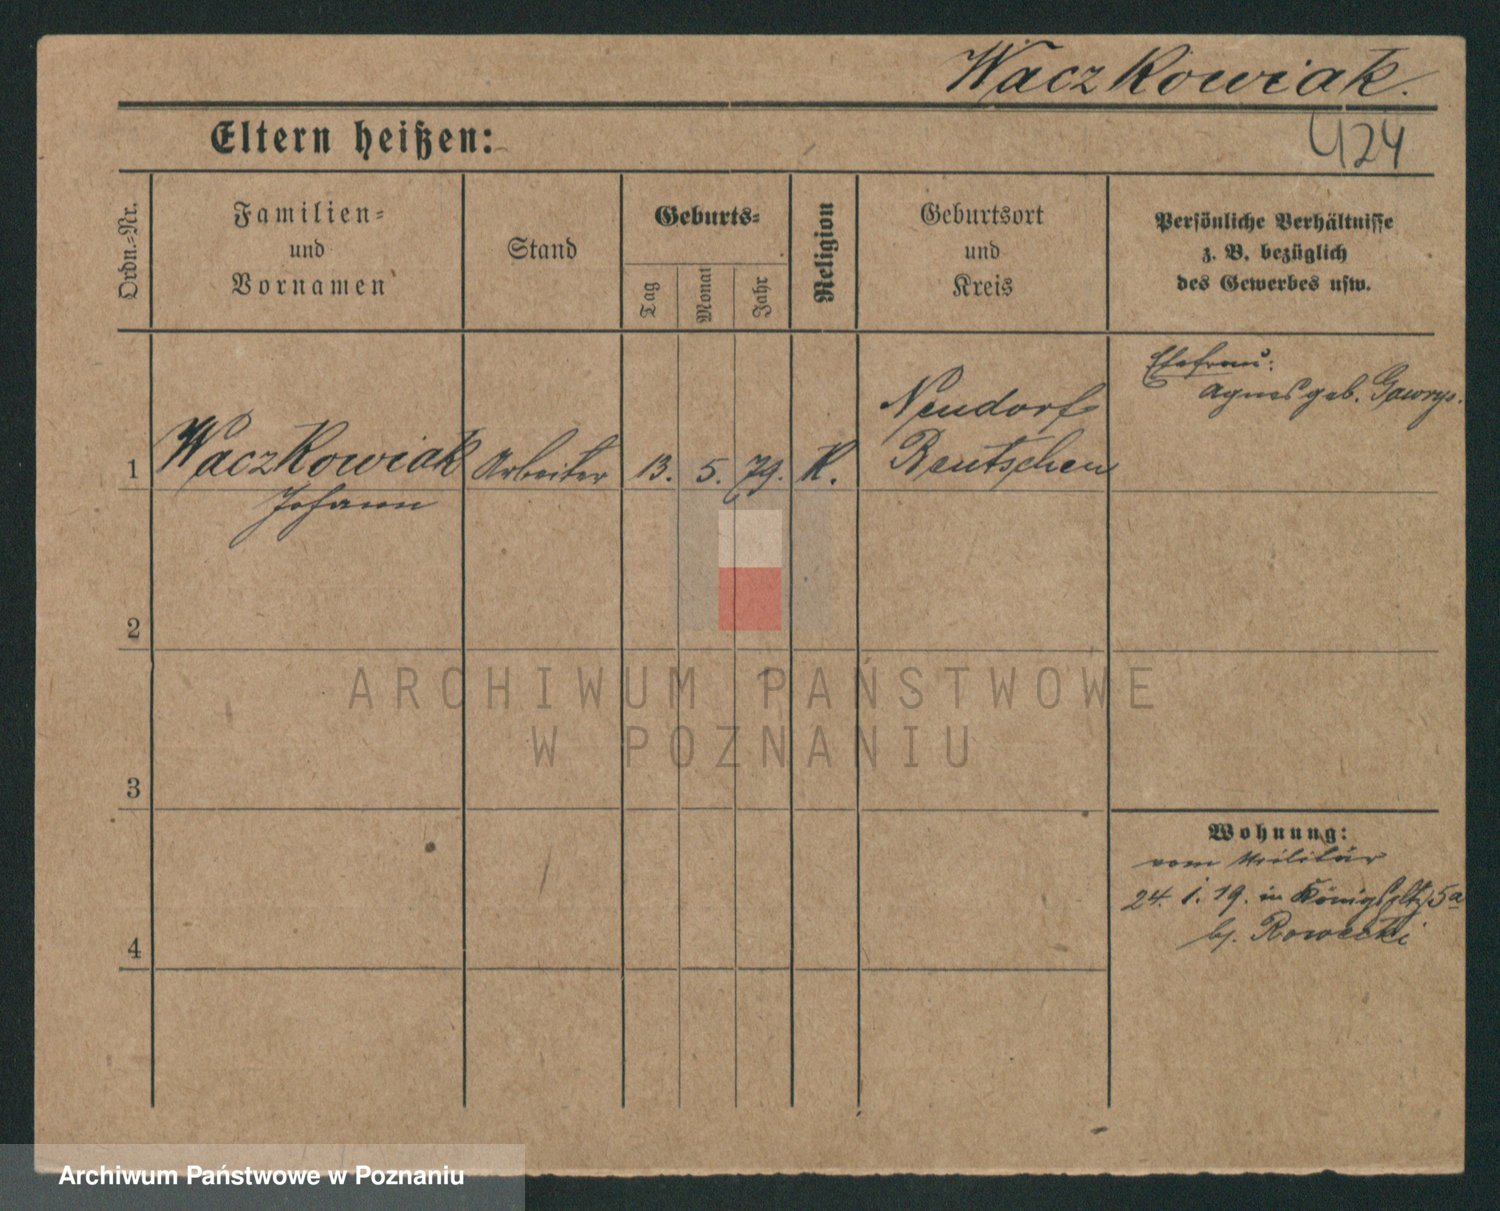 Waczkowiak.
Eltern heißen:
424
Ordn.-Nr.
Familien-
und
Vornamen
Stand
Geburts-
Tag
Monat
Jahr
Religion
Geburtsort
und
Kreis
Persönliche Verhältnisse
z. B. bezüglich
des Gewerbes usw.
1
Waczkowiak
Johann
Arbeiter
13.
5.
79.
K.
Neudorf
Bentschen
Ehefrau:
Agnes geb. Gawryś.
2
3
4
Wohnung:
vom Militär
24. 1. 19. in Königspltz 5a
bj. Rowecki
ARCHIWUM PAŃSTWOWE
W POZNANIU
Archiwum Państwowe w Poznaniu